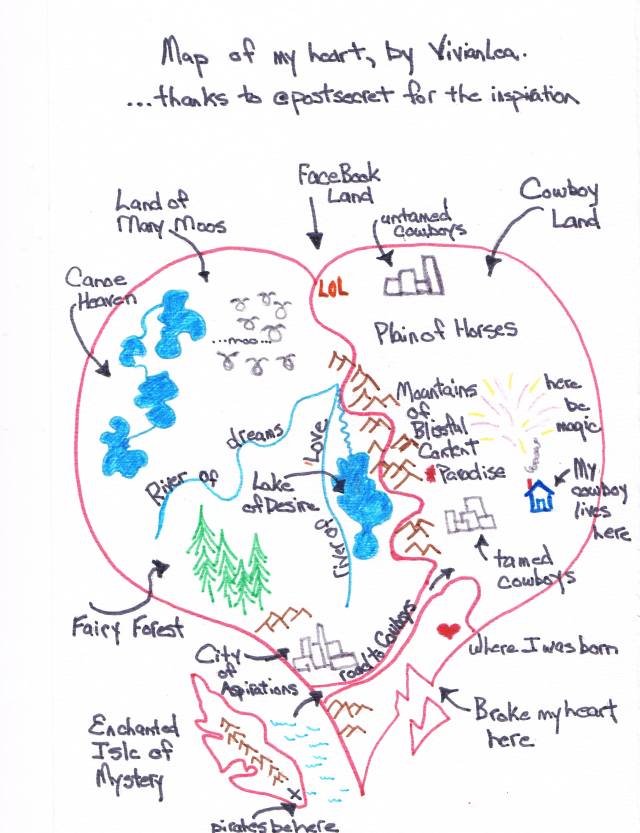 Map of my heart, by VivianLea.
...thanks to @postsecret for the inspiration
FaceBook
Land
Land of
Many Moos
untamed
cowboys
Cowboy
Land
Canoe
Heaven
LOL
...moo...
Plain of Horses
Mountains
of
Blissful
Content
Paradise
here
be
magic
River of dreams
River of Love
Lake
of Desire
My
cowboy
lives
here
tamed
cowboys
Fairy Forest
City
of
Aspirations
road to Cowboys
where I was born
Enchanted
Isle of
Mystery
Broke my heart
here
x
pirates be here